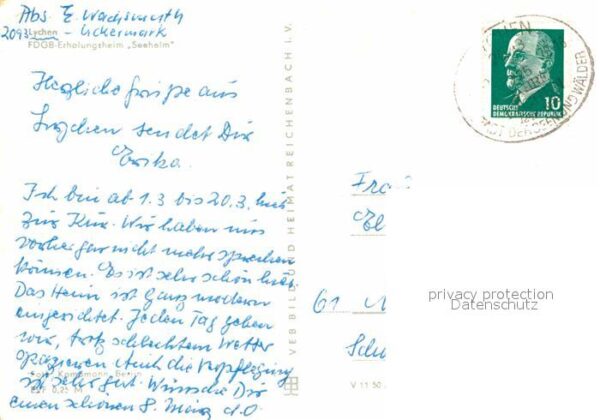 Abs. E. Wachsmuth
2093 Lychen - Uckermark
FDGB-Erholungsheim „Seeheim"
Herzliche Grüße aus
Lychen sendet Dir
Erika.
Ich bin ab 1.3 bis 20.3. hier
zur Kur. Wir haben uns
vorher gar nicht mehr sprechen
können. Es ist sehr schön hier.
Das Heim ist ganz modern
eingerichtet. Jeden Tag gehen
wir, trotz schlechtem Wetter
spazieren. Auch die Verpflegung
ist sehr gut. Wünsche Dir
einen schönen 8. März d. O.
Foto: Kampmann, Berlin
EVP 0,25 M
VEB BILD UND HEIMAT REICHENBACH I. V.
V 11 50
DEUTSCHE
DEMOKRATISCHE REPUBLIK
10
CHEN
STADT DER SEEN UND WÄLDER
Fra
El
61
Schu
privacy protection
Datenschutz